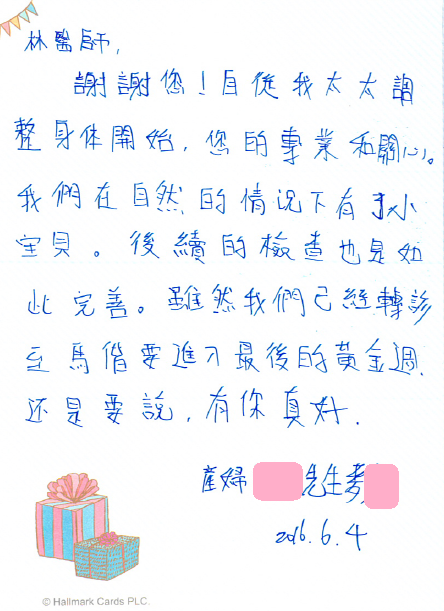 林醫師,
謝謝您!自從我太太調
整身体開始,您的專業和關心。
我們在自然的情況下有了小
宝貝。後續的檢查也是如
此完善。雖然我們已經轉診
至馬偕要進入最後的黃金週,
还是要說,有你真好.
產婦 先生
2016.6.4
© Hallmark Cards PLC.